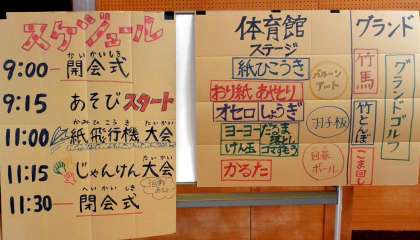 スケジュール
9:00 開会式
かいかいしき
9:15 あそびスタート
11:00 紙飛行機大会
かみひこうき たいかい
11:15 じゃんけん大会
たいかい
11:30 閉会式
へいかいしき
体育館
ステージ
紙ひこうき
おり紙 あやとり
オセロ しょうぎ
ヨーヨー だるま落とし
けん玉 コマまわし
かるた
バルーンアート
羽子板
グランド
竹馬
竹とんぼ
こま回し
グランドゴルフ